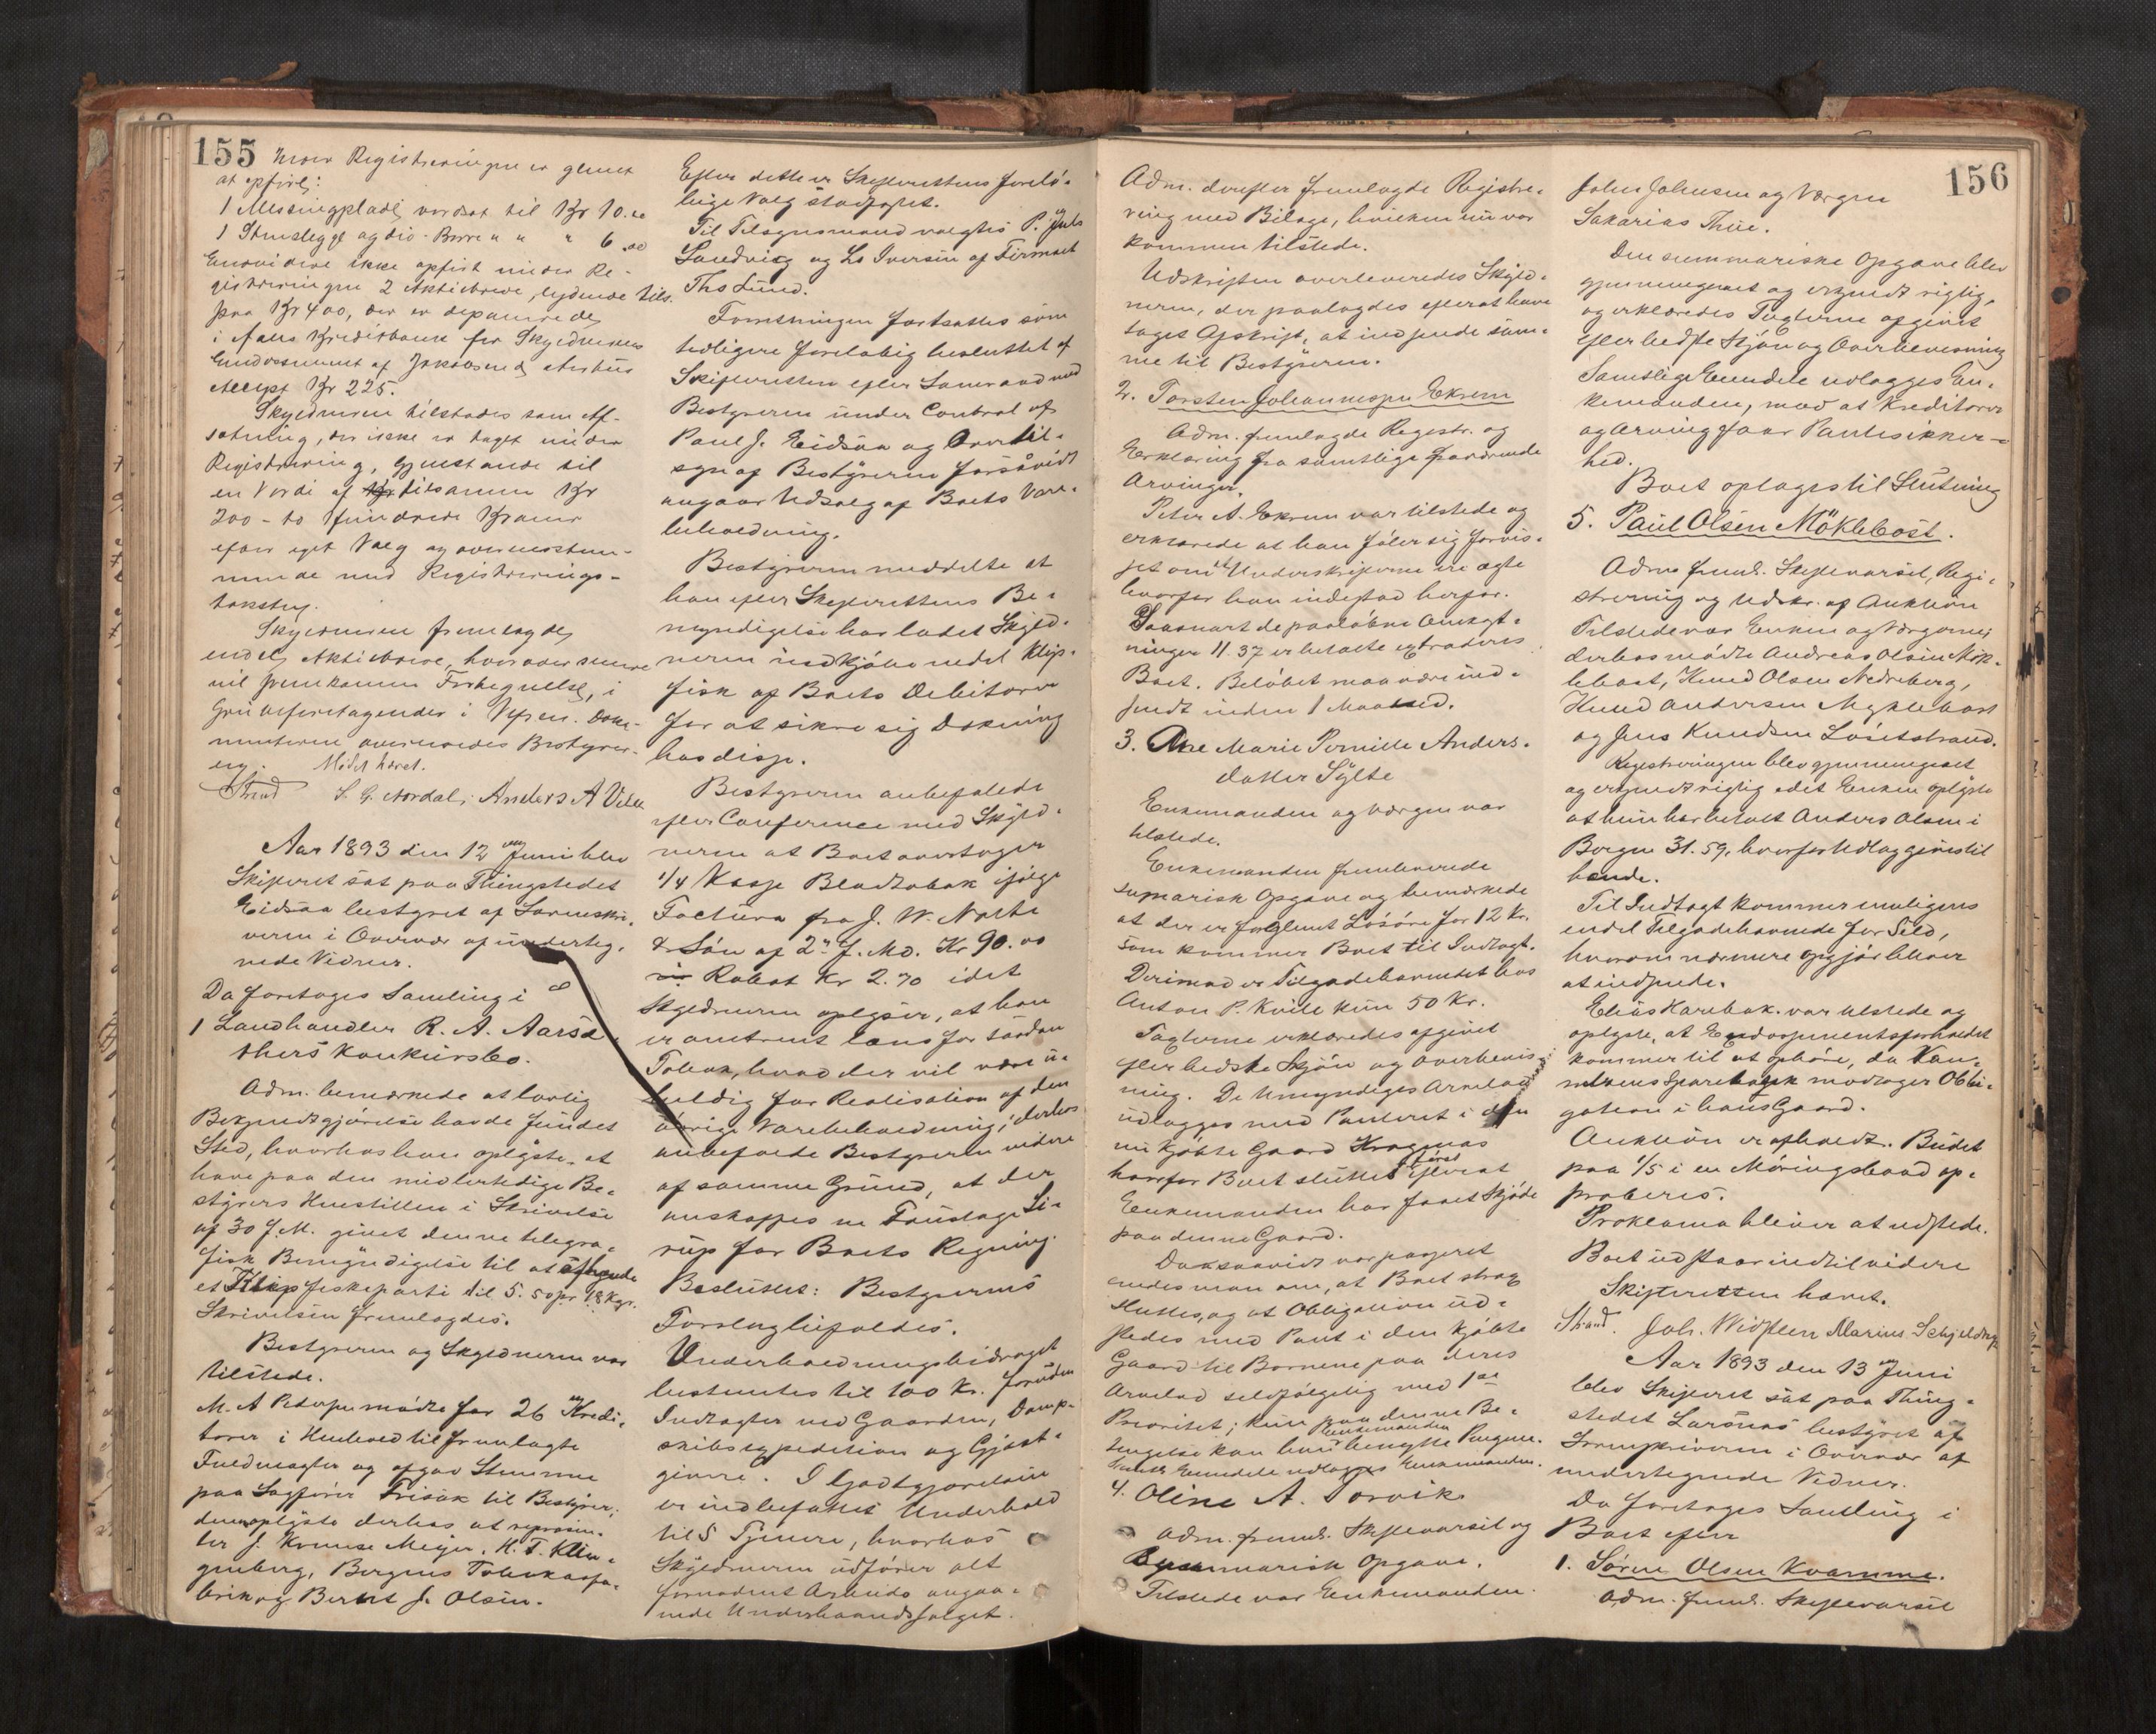 155
under Registreringen er glemt
at opføre:
1 Messingplade værdsat til Kr 10.00
1 Stenslegge og dio - Borre " " " 6.00
Endvidere ikke opført under Re-
gistreringen 2 Aktiebreve, lydende tils.
paa Kr 400, der er deponerede
i Aalls Kreditbank for Skyldnerens
Endossement af
Accept Kr 225.
Skyldneren tilstodes som Af-
satning, der ikke er taget under
Registrering, Gjenstande til
en Værdi af Kr tilsammen Kr
200 - to hundrede Kroner
efter eget Valg og overensstem-
mende med Registrerings-
taksten.
Skyldneren fremlagde
endel Aktiebreve, hvorover senere
vil fremkomme Fortegnelse, i
Grubeforetagender i Vefsen. Doku-
menterne overleveredes Bestyrer-
en. Mødet hævet.
Strand S. G. Aordal, Anders A Velle
Aar 1893 den 12te Juni blev
Skifteret sat paa Thingstedet
Eidsaa bestyret af Sorenskri-
veren i Overvær af underteg-
nede Vidner.
Da foretoges Samling i
1 Landhandler R. A. Aarsæ-
thers Konkursbo.
Adm. bemærkede at lovlig
Bekjendtgjørelse havde fundet
Sted, hvorhos han oplyste, at
have paa den midlertidige Be-
styrers Henstillen i Skrivelse
af 30 f. M. givet denne telegra-
fisk Bemyndigelse til at afhænde
et Klipfiskeparti til 5.50 pr 18 Kgr.
Skrivelsen fremlagdes.
Bestyreren og Skyldneren var
tilstede.
M. A Petersen mødte for 26 Kredi-
torer i Henhold til fremlagte
Fuldmagter og afgav Stemme
paa Sagfører Frisak til Bestyrer,
denne oplyste derhos at repræsen-
ter J. Kramse Meyer, H. T. Klin-
genberg, Bergens Tobaksfa-
brik og Bernt J. Olsen.
Efter dette er Skifterettens forelø-
bige Valg stadfæstet.
Til Tilsynsmænd valgtes P. Juls
Sandvig og Ls Iversen af Firmaet
Ths Lund.
Forretningen fortsattes som
tidligere foreløbig besluttet af
Skifteretten efter Samraad med
Bestyreren under Control af
Paul J. Eidsaa og Overtil-
syn af Bestyreren forsåvidt
angaar Udsalg af Boets Vare-
beholdning.
Bestyreren meddelte at
han efter Skifterettens Be-
myndigelse har ladet Skyld-
neren indkjøbe endel Klip-
fisk af Boets Debitorer
for at sikre sig Dækning
hos disse.
Bestyreren anbefalede
efter Conference med Skyld-
neren at Boet overtager
1/4 Kasse Bladtobak ifølge
Factura fra J. W. Narte
& Søn af 2 f. Md. Kr 90.00
Rabat Kr 2.70 idet
Skyldneren oplyser, at han
er omtrent læns for saadan
Tobak, hvad der vil være u-
heldig for Realisation af den
øvrige Varebeholdning; derhos
anbefalede Bestyreren videre
af samme Grund, at der
anskaffes en Fustage Si-
rup for Boets Regning.
Besluttet: Bestyrerens
Forslag bifaldes.
Underholdningsbidraget
bestemtes til 100 Kr. foruden
Indtægter ved Gaarden, Damp-
skibsexpedition og Gjæst-
giveri. I Godtgjørelsen
er indbefattet Underhold
til 5 Tjenere, hvorhos
Skyldneren udfører alt
fornødent Arbeide angaa-
ende Underhaandssalget.
156
Adm. derefter fremlagde Registre-
ring med Bilage, hvilken nu var
kommen tilstede.
Udskriften overleveredes Skyld-
neren, der paalagdes efter at have
taget Afskrift, at indsende sam-
me til Bestyreren.
2. Torsten Johannessen Ekrem
Adm. fremlagde Registr. og
Erklæring fra samtlige fraværende
Arvinger.
Peter A. Ekrem var tilstede og
erklærede at han føler sig forvis-
set om at Underskrifterne ere ægte
hvorfor han indestod herfor.
Saasnart de paaløbne Omkost-
ninger 11.37 er betalte extraderes
Boet. Beløbet maa være ind-
sendt inden 1 Maaned.
3. Ane Marie Pernille Anders-
datter Sylte
Enkemanden og Værgen var
tilstede.
Enkemanden fremleverede
summarisk Opgave og bemærkede
at der er forglemt Løsøre for 12 Kr.
som kommer Boet til Indtægt.
Derimod er Tilgodehavendet hos
Anton P. Kvile kun 50 Kr.
Taxterne erklæredes afgivet
efter bedste Skjøn og Overbevis-
ning. De Umyndiges Arvelod
udlægges med Panteret i den
nu kjøbte Gaard Kragenas
hvorfor Boet sluttes først efterat
Enkemanden har faaet Skjøde
paa denne Gaard.
Da saavidt var passeret
enedes man om, at Boet strax
sluttes, og at Obligation ud-
stedes med Pant i den kjøbte
Gaard til Børnene paa deres
Arvelod selvfølgelig med 1ste
Prioritet; kun paa denne Be-
tingelse kan Enkemanden benytte Pengene.
Samtl. Eiendele udlægges Enkemanden.
4. Oline A. Sørvik
Adm. freml. Skiftevarsel og
Summarisk Opgave.
Tilstede var Enkemanden
John Johnsen og Værgen
Sakarias Thue.
Den summariske Opgave blev
gjennemgaaet og erkjendt rigtig,
og erklæredes Taxterne afgivet
efter bedste Skjøn og Overbevisning
Samtlige Eiendele udlægges En-
kemanden, mod at Kreditorer
og Arving faar Pantesikker-
hed.
Boet optages til Slutning
5. Paul Olsen Möklebost.
Adm. freml. Skiftevarsel, Regi-
strering og Udskr. af Auktion
Tilstede var Enken og Værgerne,
derhos mødte Andreas Olsen Møk-
lebost, Knud Olsen Nedreberg,
Knud Andersen Myklebost
og Jens Knudsen Løsetstrand.
Registreringen blev gjennemgaaet
og erkjendt rigtig idet Enken oplyste
at hun har betalt Anders Olsen i
Bergen 31.59, hvorfor Udlæg gives til
hende.
Til Indtægt kommer muligens
endel Tilgodehavende for Sild,
hvorom nærmere Opgjør bliver
at indsende.
Elias Harebak. var tilstede og
oplyste, at Endossementsforholdet
kommer til at ophøre, da Van-
elvens Sparebank modtager Obli-
gation i hans Gaard.
Auktion er afholdt. Budet
paa 1/5 i en Møringsbaad op-
proberes.
Proklama bliver at udstede.
Boet udstaar indtil videre
Skifteretten hævet.
Strand. Joh. Widsteen Marius Schjelderup
Aar 1893 den 13de Juni
blev Skifteret sat paa Thing-
stedet Larsnes bestyret af
Sorenskriveren i Overvær af
undertegnede Vidner.
Da foretoges Samling i
Boet efter
1. Søren Olsen Kvamme.
Adm. freml. Skiftevarsel